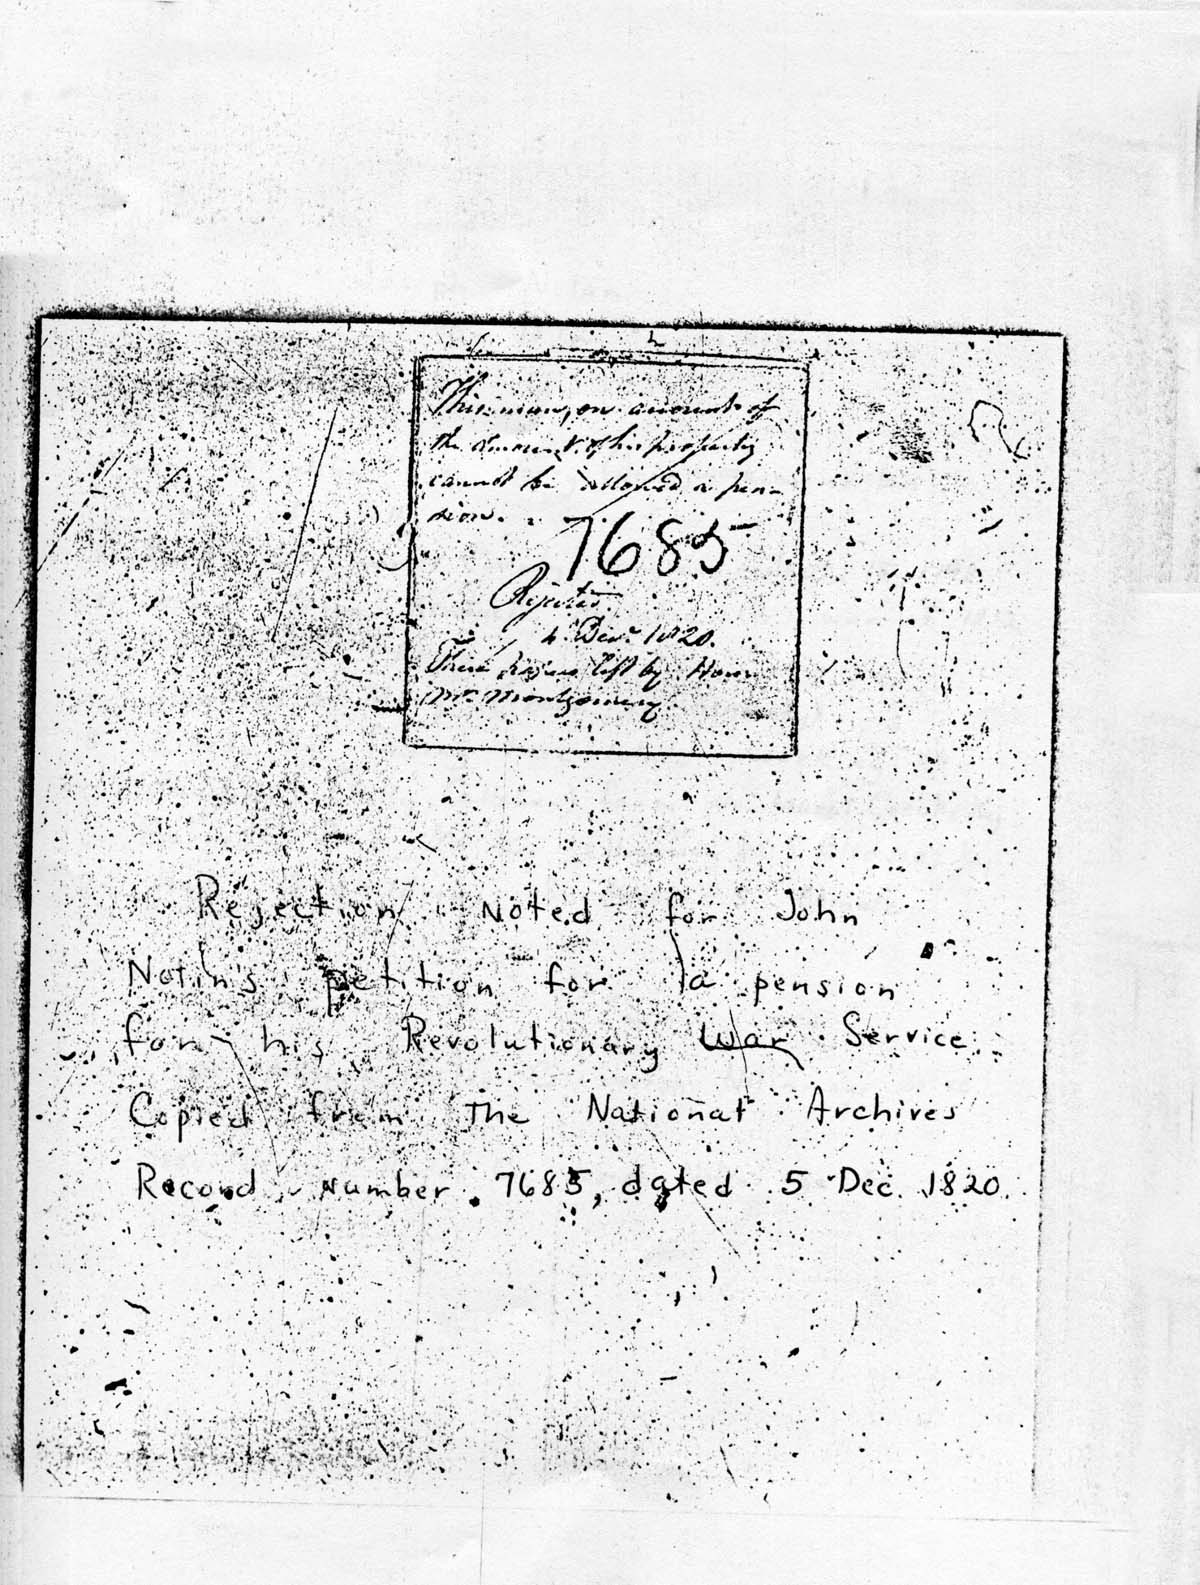 This man, on account of
the amount of his property
cannot be allowed a pen-
sion.
7685
Rejected
Dec. 1820.
These papers left by Hon.
Mr. Montgomery
Rejection Noted for John
petition for a pension
for his Revolutionary War Service
Copied from The National Archives
Record Number 7685, dated 5 Dec. 1820.